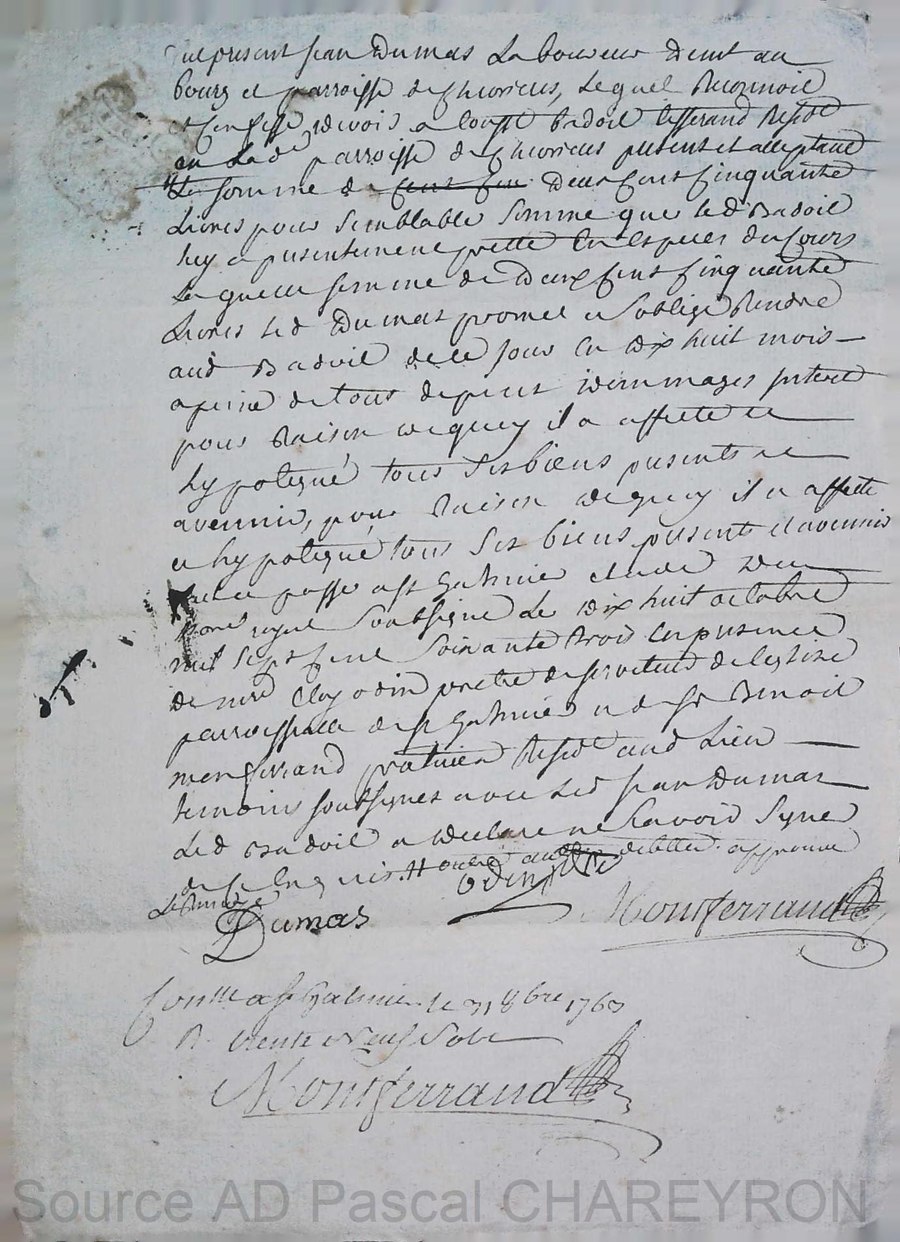 present Jean Dumas Laboureur demt au
bourg et parroisse de Chevrieres, Lequel Reconnoit
et Confesse devoir a Badoil tisserand Residt
en Lade parroisse de Chevrieres present et acceptant
La somme de Cent Cin Deux Cent Cinquante
Livres pour semblable somme que led Badoil
luy a presentement prette En especes du Cours
Laquelle somme de Deux Cent Cinquante
Livres led Dumas promet et soblige Rendre
aud Badoil de ce jour en dix huit mois
a peine de tous depens dommages interet
pour Raison dequoy il a affecté et
hypotequé tous ses biens presents et
avennir, pour Raison dequoy il a affecté
et hypotequé tous ses biens presents et avennir
passe a st Galmier etude du
nore royal soussigné Le dix huit octobre
mil sept Cent Soixante trois En presence
de mre odin pretre desserviteur de leglise
parroissialle de st Galmier et de sr Benoit
montferrand praticien Residt aud Lieu
temoins soussignes avec led Jean Dumas
Led Badoil a declaré ne scavoir signer
de ce Enquis approuvé
Dumas
odin ptre
Montferrand
Conllé a st Galmier le 31 8bre 1763
R trente Neuf Sols
Montferrand
Source AD Pascal CHAREYRON